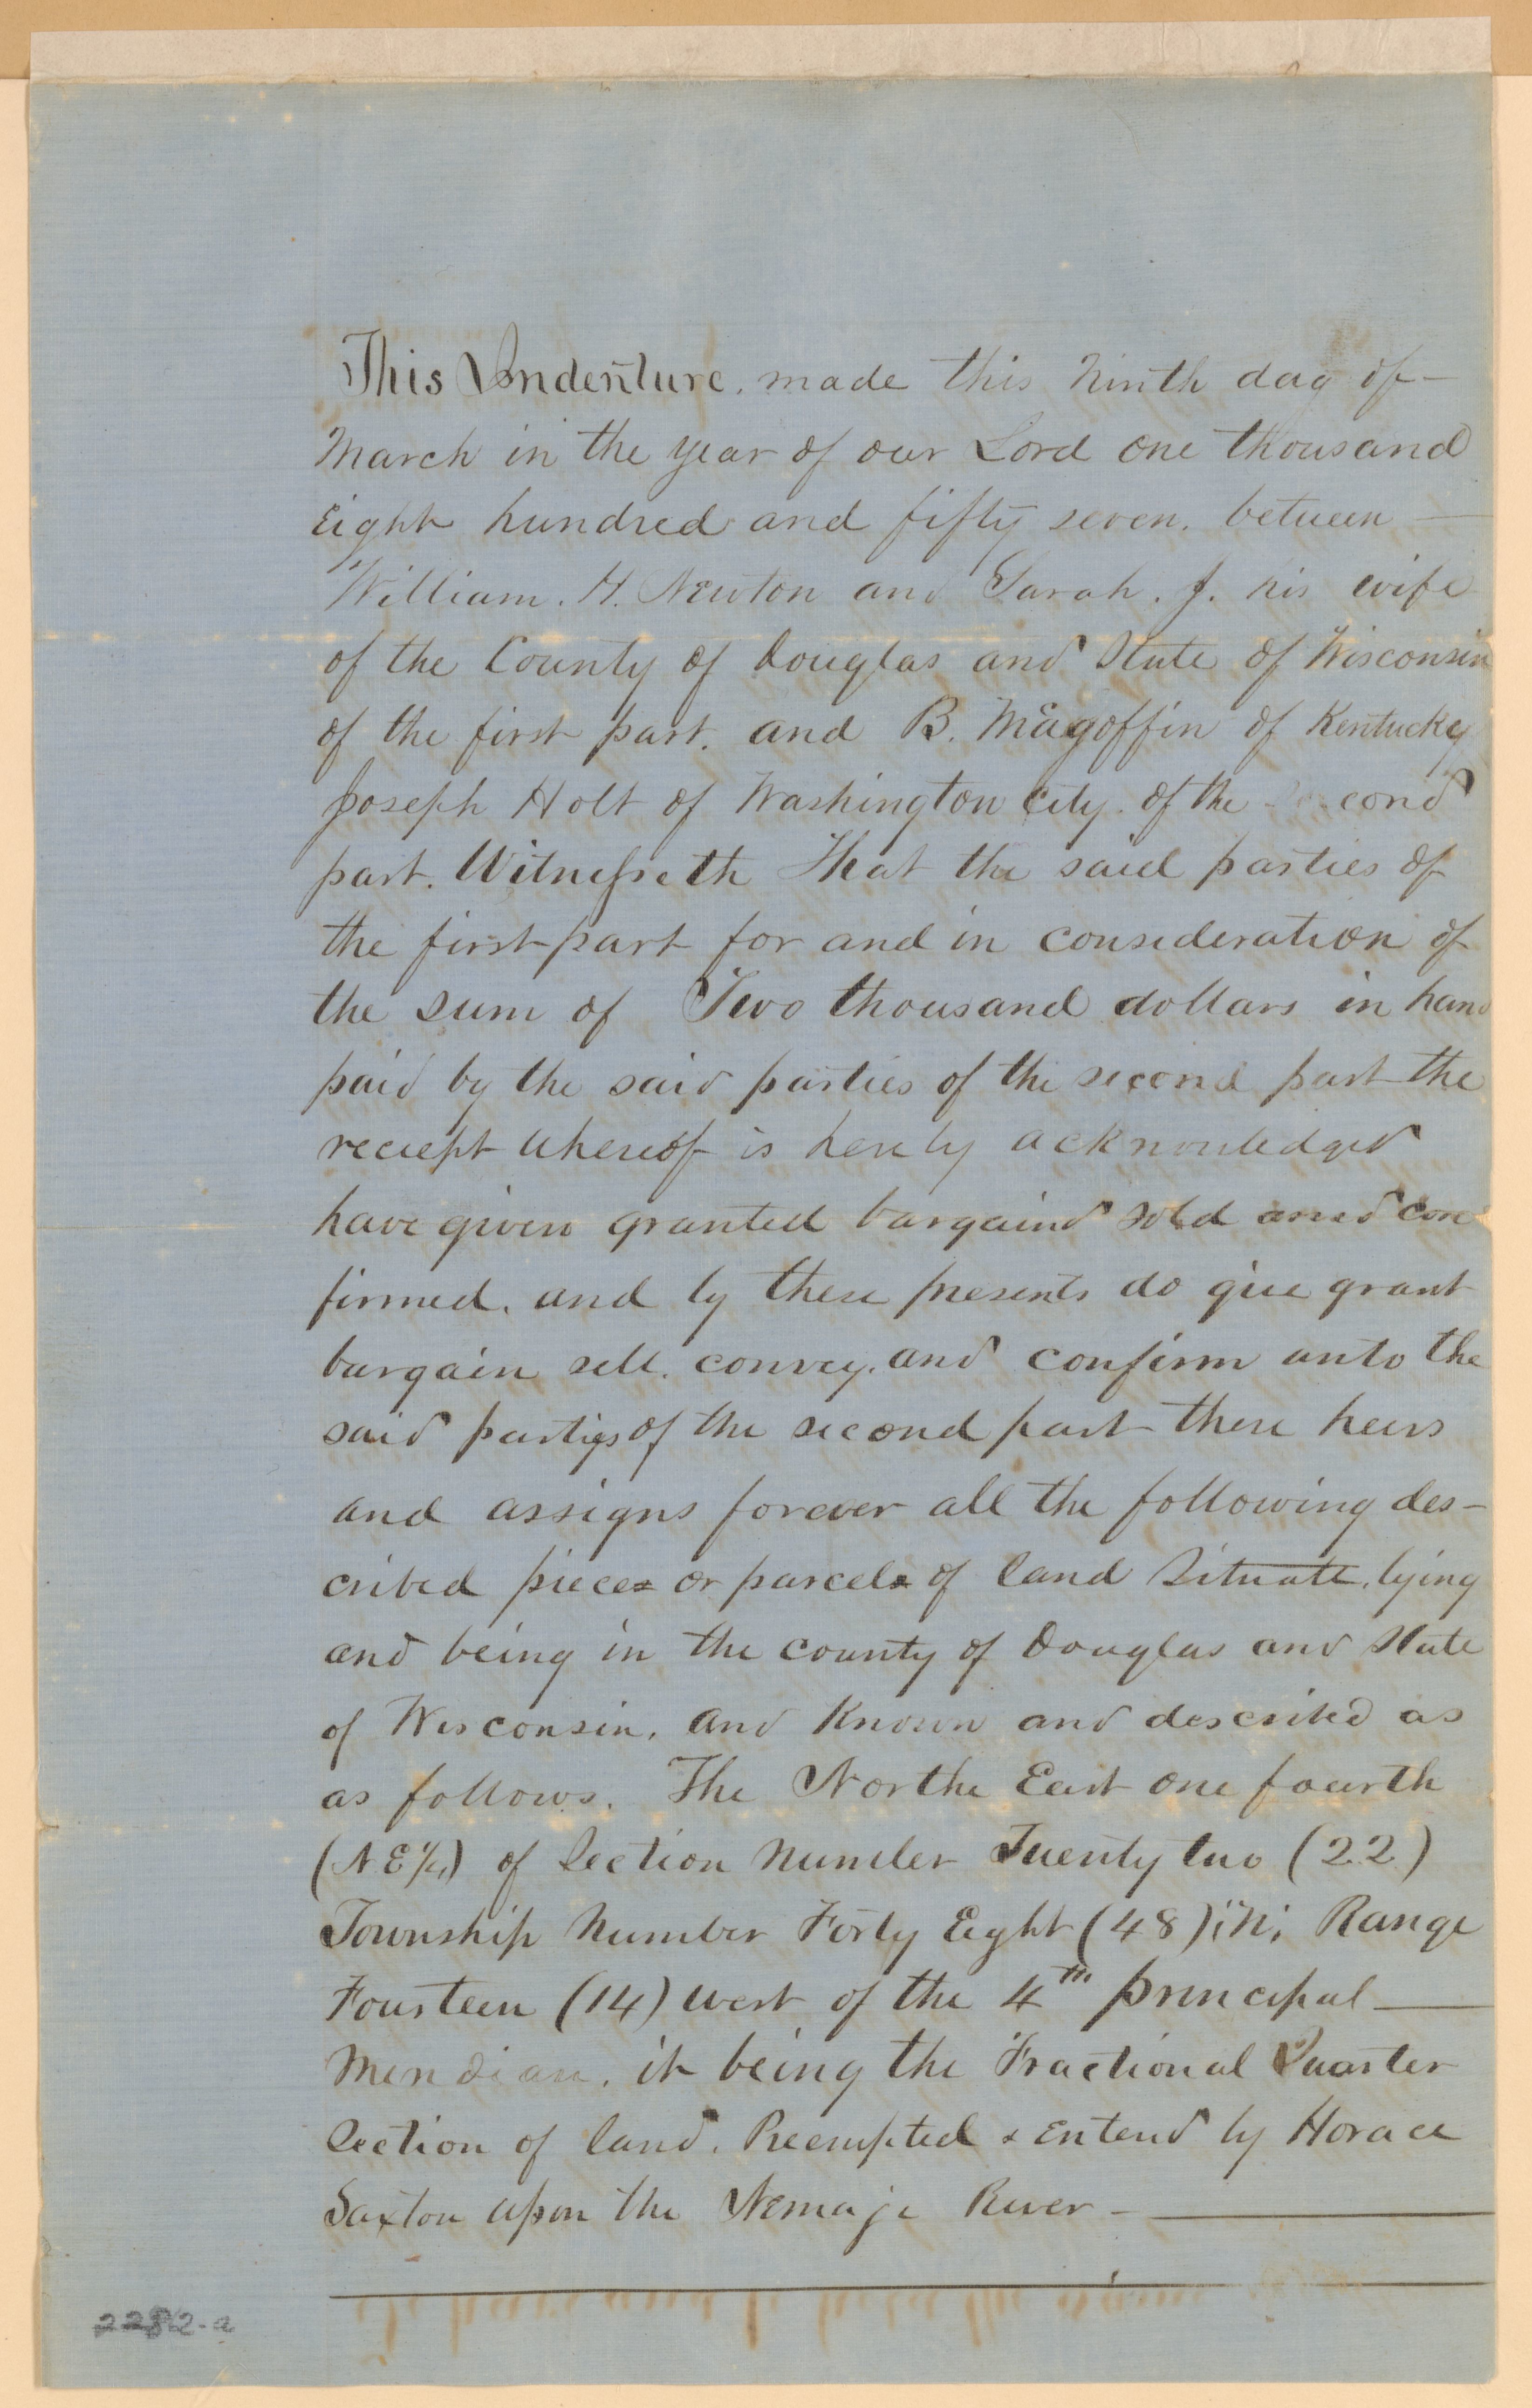 This Indenture, made this Ninth day of —
March in the year of our Lord one thousand
Eight hundred and fifty seven. between —
William. H. Newton and Sarah. J. his wife
of the County of Douglas and State of Wisconsin
of the first part. and B. Magoffin of Kentucky
Joseph Holt of Washington City. of the Second
part. Witnesseth That the said parties of
the first part for and in consideration of
the sum of Two thousand dollars in hand
paid by the said parties of the second part the
reciept whereof is hereby acknowledged
have given granted bargaind sold and con
firmed. and by these presents do give grant
bargain sell. convey. and confirm unto the
said parties of the second part there heirs
and assigns forever all the following des-
cribed pieces or parcels of land Situate, lying
and being in the county of Douglas and State
of Wisconsin. and Known and described as
as follows. The Northe East one fourth
(N.E¼) of Section Number Twenty two (22)
Township Number Forty Eight (48) N; Range
Fourteen (14) west of the 4th principal —
Meridian. it being the Fractional Quarter
Section of land. Preempted & Enterd by Horace
Saxton upon the Nemaje River —
2282-a